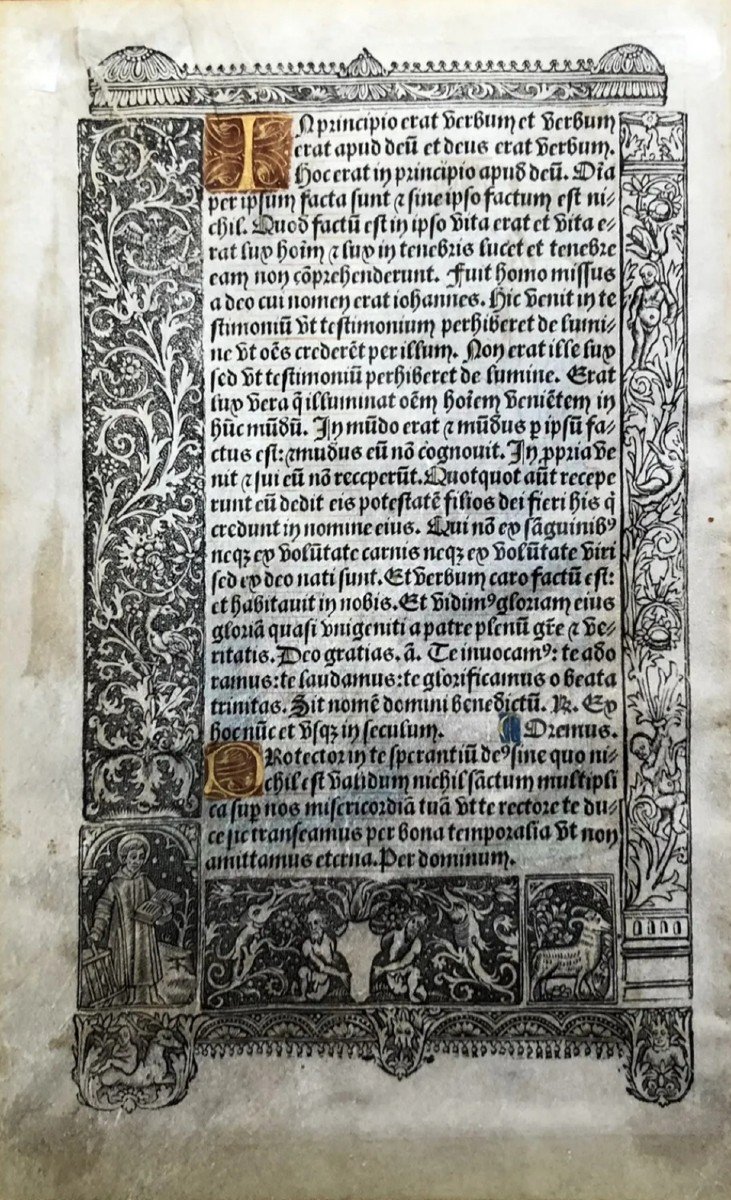 IN principio erat verbum et verbum
erat apud deū et deus erat verbum.
Hoc erat in principio apud deū. Oīa
per ipsum facta sunt ⁊ sine ipso factum est ni⸗
chil. Quod factū est in ipso vita erat et vita e⸗
rat lux hoīm ⁊ lux in tenebris lucet et tenebre
eam non cōprehenderunt. Fuit homo missus
a deo cui nomen erat iohannes. Hic venit in te
stimoniū vt testimonium perhiberet de lumi⸗
ne vt oēs crederēt per illum. Non erat ille lux
sed vt testimoniū perhiberet de lumine. Erat
lux vera q̄ illuminat oēm hoīem veniētem in
hūc mūdū. In mūdo erat ⁊ mūdus ꝑ ipsū fa⸗
ctus est: ⁊ mūdus eū nō cognovit. In ꝓpria ve
nit ⁊ sui eū nō receperūt. Quotquot aūt recepe
runt eū dedit eis potestatē filios dei fieri his q̄
credunt in nomine eius. Qui nō ex sāguinibꝰ
neqꝫ ex volūtate carnis neqꝫ ex volūtate viri
sed ex deo nati sunt. Et verbum caro factū est:
et habitavit in nobis. Et vidimꝰ gloriam eius
gloriā quasi vnigeniti a patre plenū gr̄e ⁊ ve⸗
ritatis. Deo gratias. ā. Te inuocamꝰ: te ado
ramus: te laudamus: te glorificamus o beata
trinitas. Sit nomē domini benedictū. ℟. Ex
hoc nūc et vsqꝫ in seculum. Oremus.
PRotector in te sperantiū deꝰ sine quo ni⸗
chil est validum nichil sāctum multipli
ca suꝑ nos misericordiā tuā vt te rectore te du⸗
ce sic transeamus per bona temporalia vt non
amittamus eterna. Per dominum.